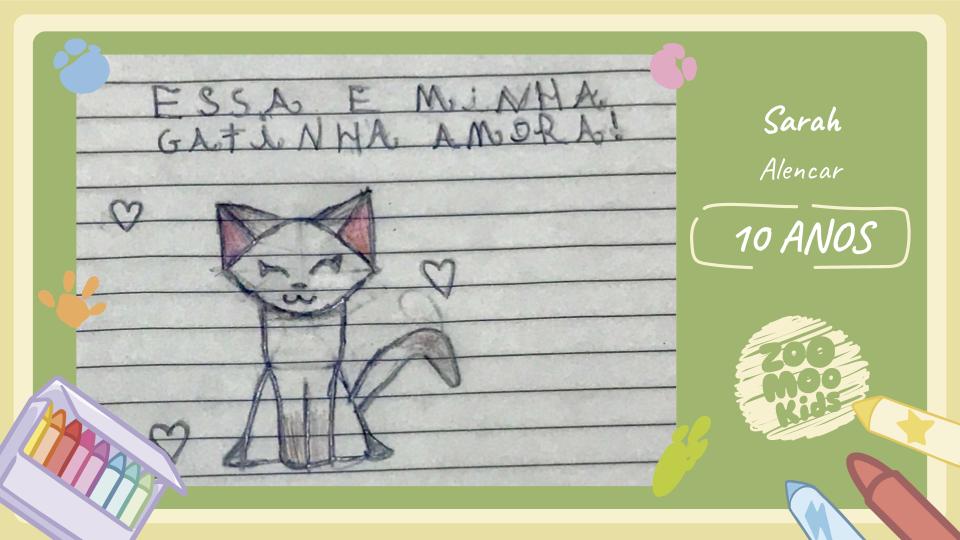 ESSA E MiNHA
GATiNHA AMORA!
Sarah
Alencar
10 ANOS
ZOO
MOO
Kids